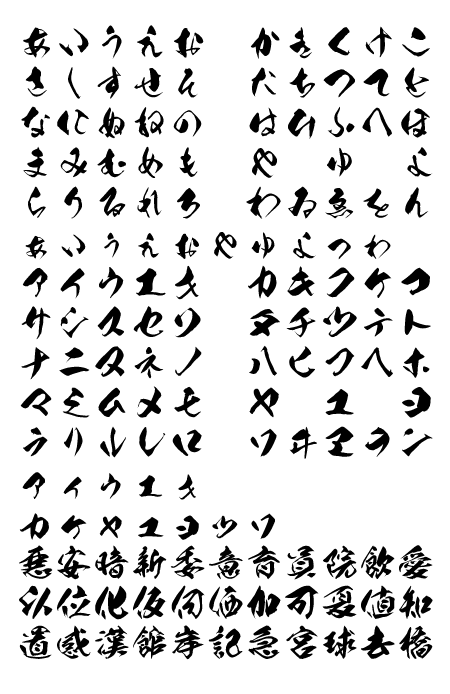 あいうえお かきくけこ
さしすせそ たちつてと
なにぬねの はひふへほ
まみむめも や ゆ よ
らりるれろ わゐゑをん
ぁぃぅぇぉゃゅょっゎ
アイウエオ カキクケコ
サシスセソ タチツテト
ナニヌネノ ハヒフヘホ
マミムメモ ヤ ユ ヨ
ラリルレロ ワヰヱヲン
ァィゥェォ
ヵヶャュョッヮ
悪安暗新委意育員院飲愛
以位化仮何価加可夏値知
道感漢館岸記急宮球去橋